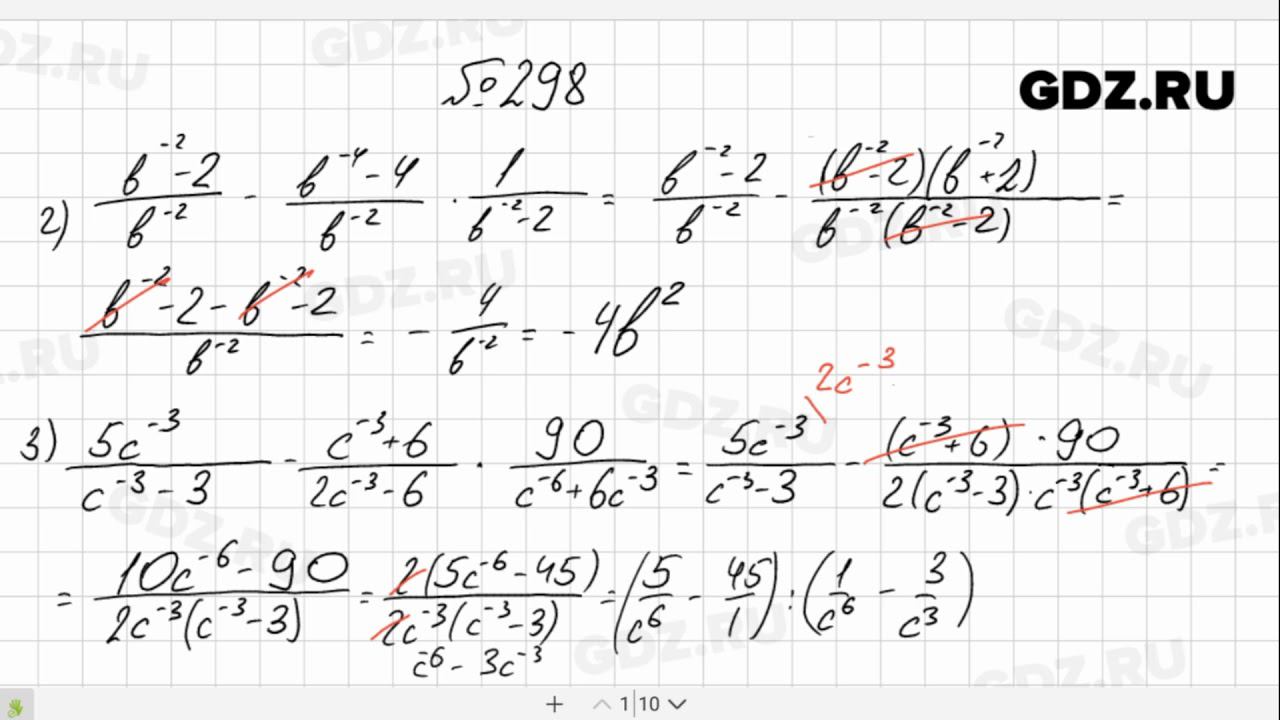 №298
GDZ.RU
2) (b⁻²-2)/b⁻² - (b⁻⁴-4)/b⁻² · 1/(b⁻²-2) = (b⁻²-2)/b⁻² - (b⁻²-2)(b⁻²+2)/(b⁻²(b⁻²-2)) =
(b⁻²-2-b⁻²-2)/b⁻² = -4/b⁻² = -4b²
2c⁻³
3) 5c⁻³/(c⁻³-3) - (c⁻³+6)/(2c⁻³-6) · 90/(c⁻⁶+6c⁻³) = 5c⁻³/(c⁻³-3) - (c⁻³+6)·90/(2(c⁻³-3)·c⁻³(c⁻³+6)) =
= (10c⁻⁶-90)/(2c⁻³(c⁻³-3)) = 2(5c⁻⁶-45)/(2c⁻³(c⁻³-3)) = (5/c⁶ - 45/1) : (1/c⁶ - 3/c³)
c⁻⁶-3c⁻³
1|10